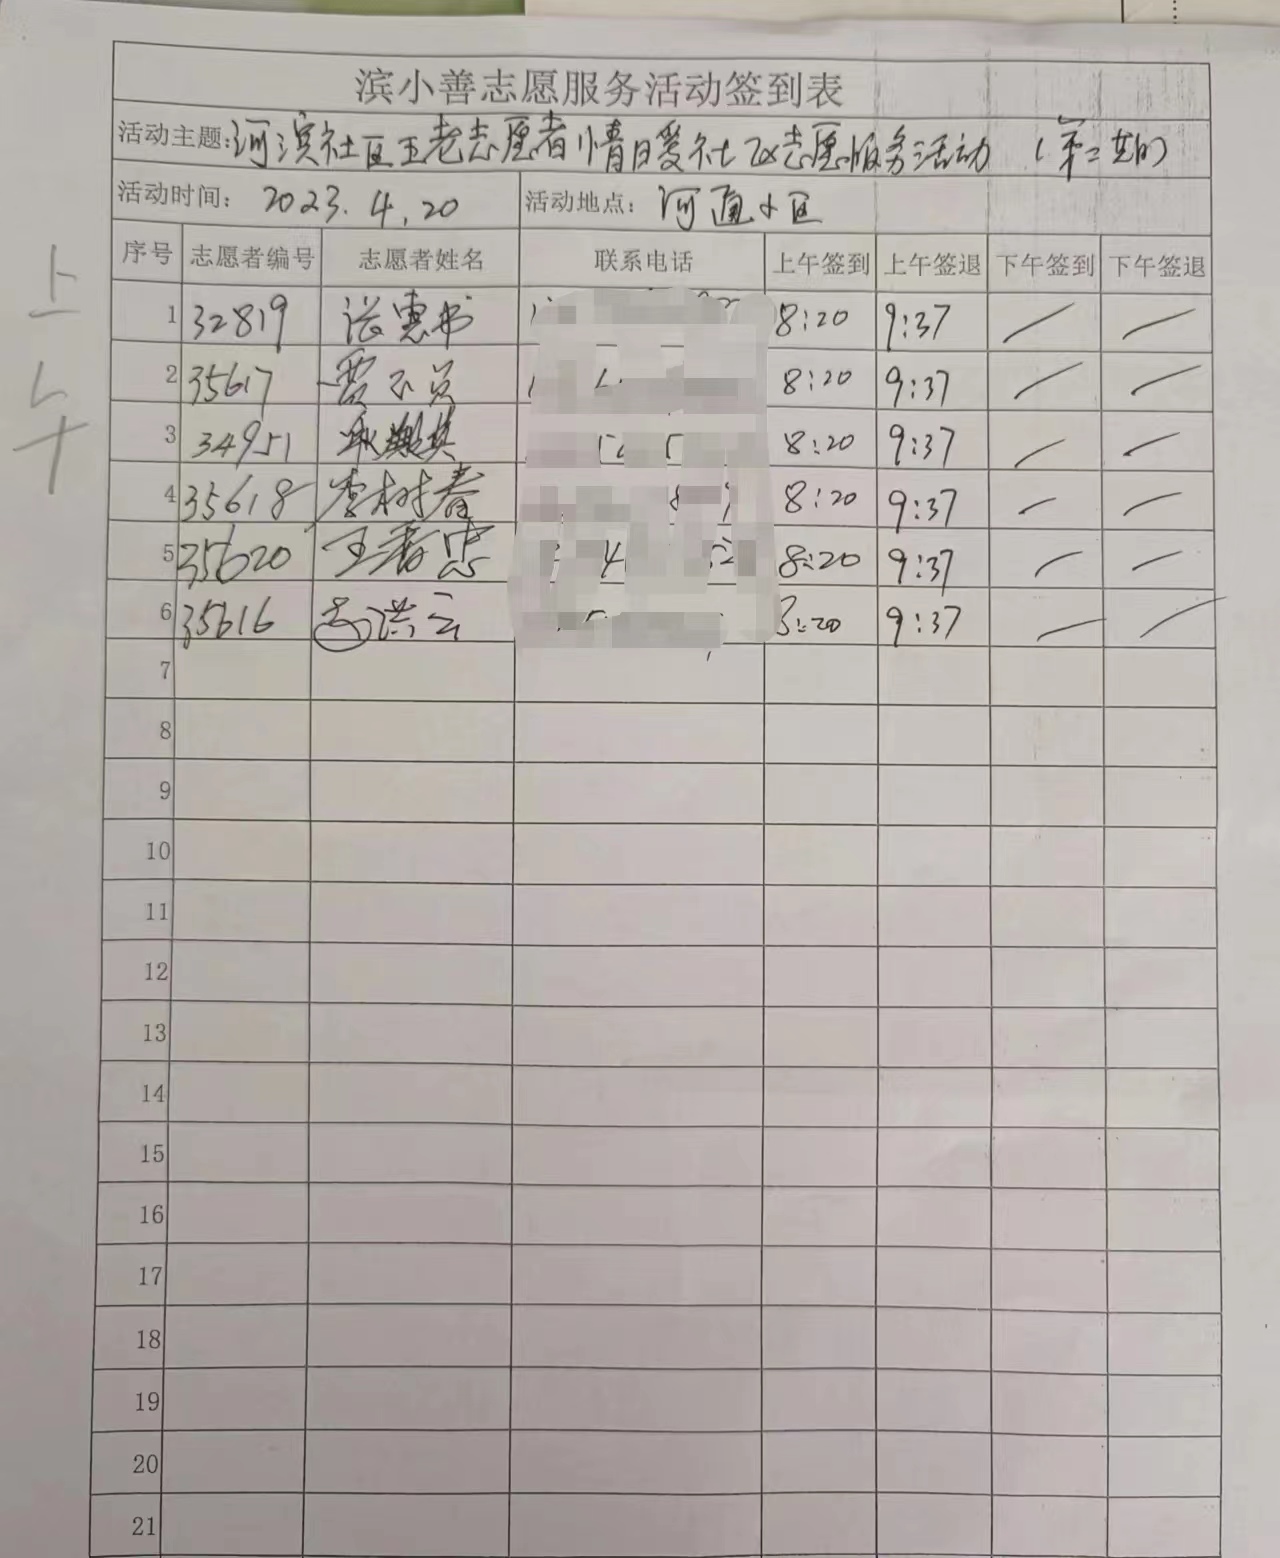 滨小善志愿服务活动签到表
活动主题:河滨社区五老志愿者情暖社区志愿服务活动(第二期)
活动时间: 2023.4.20 活动地点: 河道小区
序号 志愿者编号 志愿者姓名 联系电话 上午签到 上午签退 下午签到 下午签退
上午
1 32819 张惠书 8:20 9:37 / /
2 35617 8:20 9:37 / /
3 34951 8:20 9:37 / /
4 35618 李树春 8:20 9:37 / /
5 35620 王香忠 8:20 9:37 / /
6 35616 洪云 8:20 9:37 / /
7
8
9
10
11
12
13
14
15
16
17
18
19
20
21